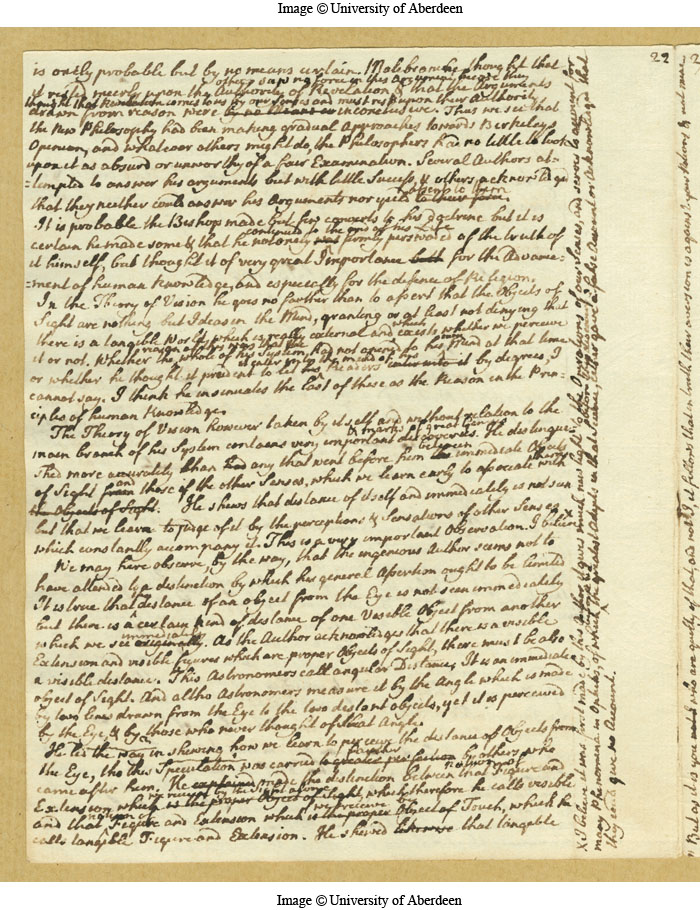 Image © University of Aberdeen
22
is onely probable but by no means certain. Malebranche thought that
others saw no force in this Argument because they
it rested meerly upon the Authority of Revelation & that the Arguments
thought that Revelation comes to us by our Senses and must rest upon their Authority
drawn from reason were by no means inconclusive. Thus we see that
the New Philosophy had been making gradual Approaches towards Berkeleys
Opinion, and whatever others might do, the Philosophers had no title to look
upon it as absurd or unworthy of a fair Examination. Several Authors at-
=tempted to answer his arguments but with little Success, & others acknowledged
that they neither could answer his Arguments nor yield to their force.
assent to them
It is probable the Bishop made but few converts to his doctrine but it is
continued to the end of his Life
certain he made some & that he not onely was firmly perswaded of the truth of
it himself, but thought it of very great Importance both for the Advance-
=ment of human Knowledge, and especially for the defence of Religion.
In the Theory of Vision he goes no farther than to assert that the Objects of
Sight are nothing but Ideas in the Mind, granting or at least not denying that
there is a tangible World which is really external and exists whether we perceive
which
it or not. Whether the reason of this was that the whole of his System, had not occured to his Mind at that time
or whether he thought it prudent to let his Readers enter into it by degrees, I
it enter into the minds of his
cannot say. I think he insinuates the last of these as the Reason in the Prin-
ciples of human Knowledge.
The Theory of Vision however taken by itself and without relation to the
& marks of great Genius
main branch of his System contains very important discoveries. He distingui-
between
shed more accurately than had any that went before him the immediate Objects
of Sight from those of the other Senses, which we learn early to associate with
and
them
the Objects of Sight. He shews that distance of itself and immediately is not seen
but that we learn to judge of it by the perceptions & Sensations of other Senses
which constantly accompany it. This is a very important Observation. I believe
We may here observe, by the way, that the ingenious Author seems not to
have attended to a distinction by which his general Assertion ought to be limited
It is true that distance of an object from the Eye is not seen immediately
but there is a certain kind of distance of one Visible Object from another
immediately
which we see originally. As the Author acknowledges that there is a visible
Extension and visible figures which are proper Objects of Sight, there must be also
a visible distance. This Astronomers call angular Distance, It is an immediate
object of Sight. And altho Astronomers measure it by the Angle which is made
by two lines drawn from the Eye to the two distant objects, yet it is perceived
by the Eye, & by those who never thought of that Angle.
He led the way in shewing how we learn to perceive the distance of Objects from
the Eye, tho this Speculation was carried to greater perfection by others who
farther
came after him. He explained made the distinction between that Figure and
notion of
Extension which is the proper Object of Sight, which therefore he calls visible
we perceive by the Sight alone
and that Figure and Extension which is the proper Object of Touch, which he
notion of
we perceive by
calls tangible Figure and Extension. He shewed likewise that tangible
X I believe it was first made by this Author & gives much new light to the Operations of our Senses, and serves to account for
many Phenomena in Opticks, of which the greatest Adepts in that Science, either gave a false Account or Acknowledged that
they could give no Account.
Image © University of Aberdeen